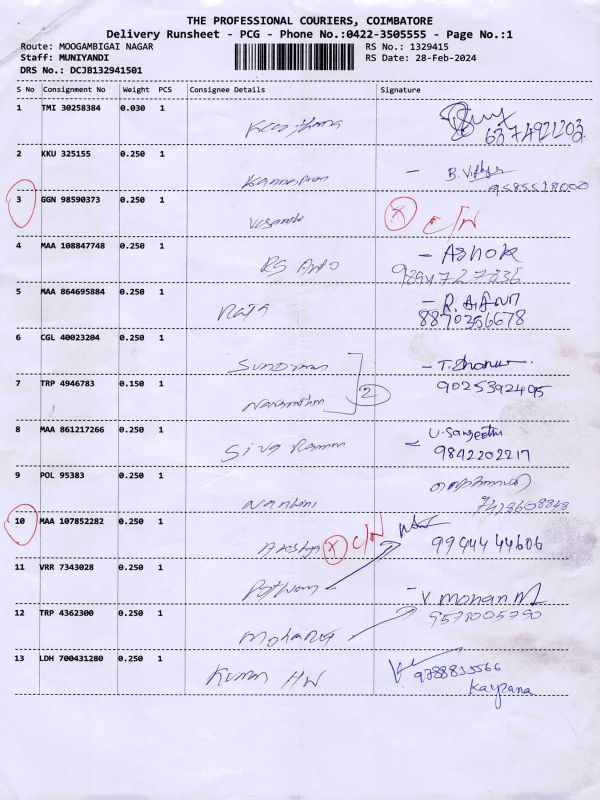 THE PROFESSIONAL COURIERS, COIMBATORE
Delivery Runsheet - PCG - Phone No.:0422-3505555 - Page No.:1
Route: MOOGAMBIGAI NAGAR RS No.: 1329415
Staff: MUNIYANDI RS Date: 28-Feb-2024
DRS No.: DCJB132941501
S No Consignment No Weight PCS Consignee Details Signature
1 TMI 30258384 0.030 1
6374921203
2 KKU 325155 0.250 1
B. Vidhya
9585518000
3 GGN 98590373 0.250 1 X C/N
4 MAA 108847748 0.250 1 RS Auto - ASHOK
5 MAA 864695884 0.250 1 - R.
8870356678
6 CGL 40023204 0.250 1 - T.
7 TRP 4946783 0.150 1 2 9025392495
8 MAA 861217266 0.250 1 Siva Raman U. Sangeetha
9842202217
9 POL 95383 0.250 1 Nandhini
10 MAA 107852282 0.250 1 Akshya X C/N
99444 44606
11 VRR 7343028 0.250 1
- V. Mohan
12 TRP 4362300 0.250 1 9578005790
13 LDH 700431280 0.250 1 Kumar HW
Kalpana